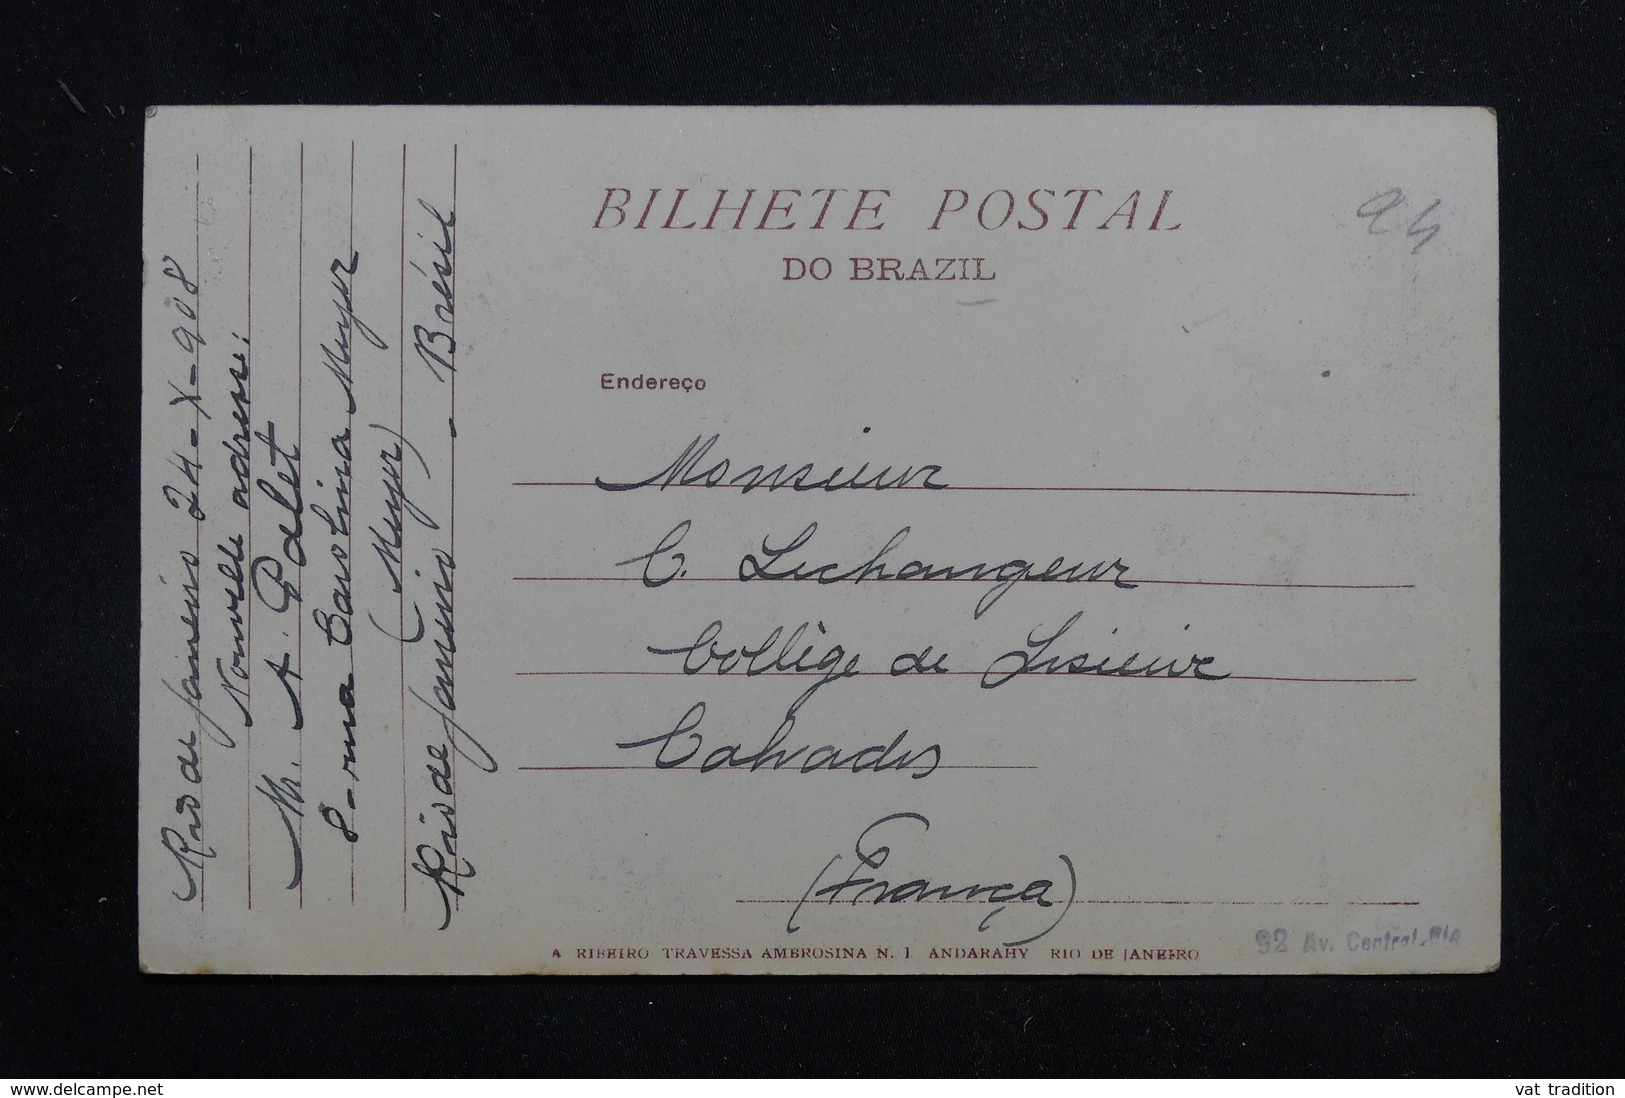 BILHETE POSTAL
DO BRAZIL
Endereço
Monsieur
C. Lechangeur
Collège de Lisieux
Calvados
(França)
Rio de Janeiro 24-X-908
Nouvelle adresse:
Mr. A. Palet
8-rua Carolina Meyer
(Meyer)
Rio de Janeiro - Brésil
A RIBEIRO TRAVESSA AMBROSINA N. 1 ANDARAHY RIO DE JANEIRO
92 Av. Central
delcampe.net
vat tradition